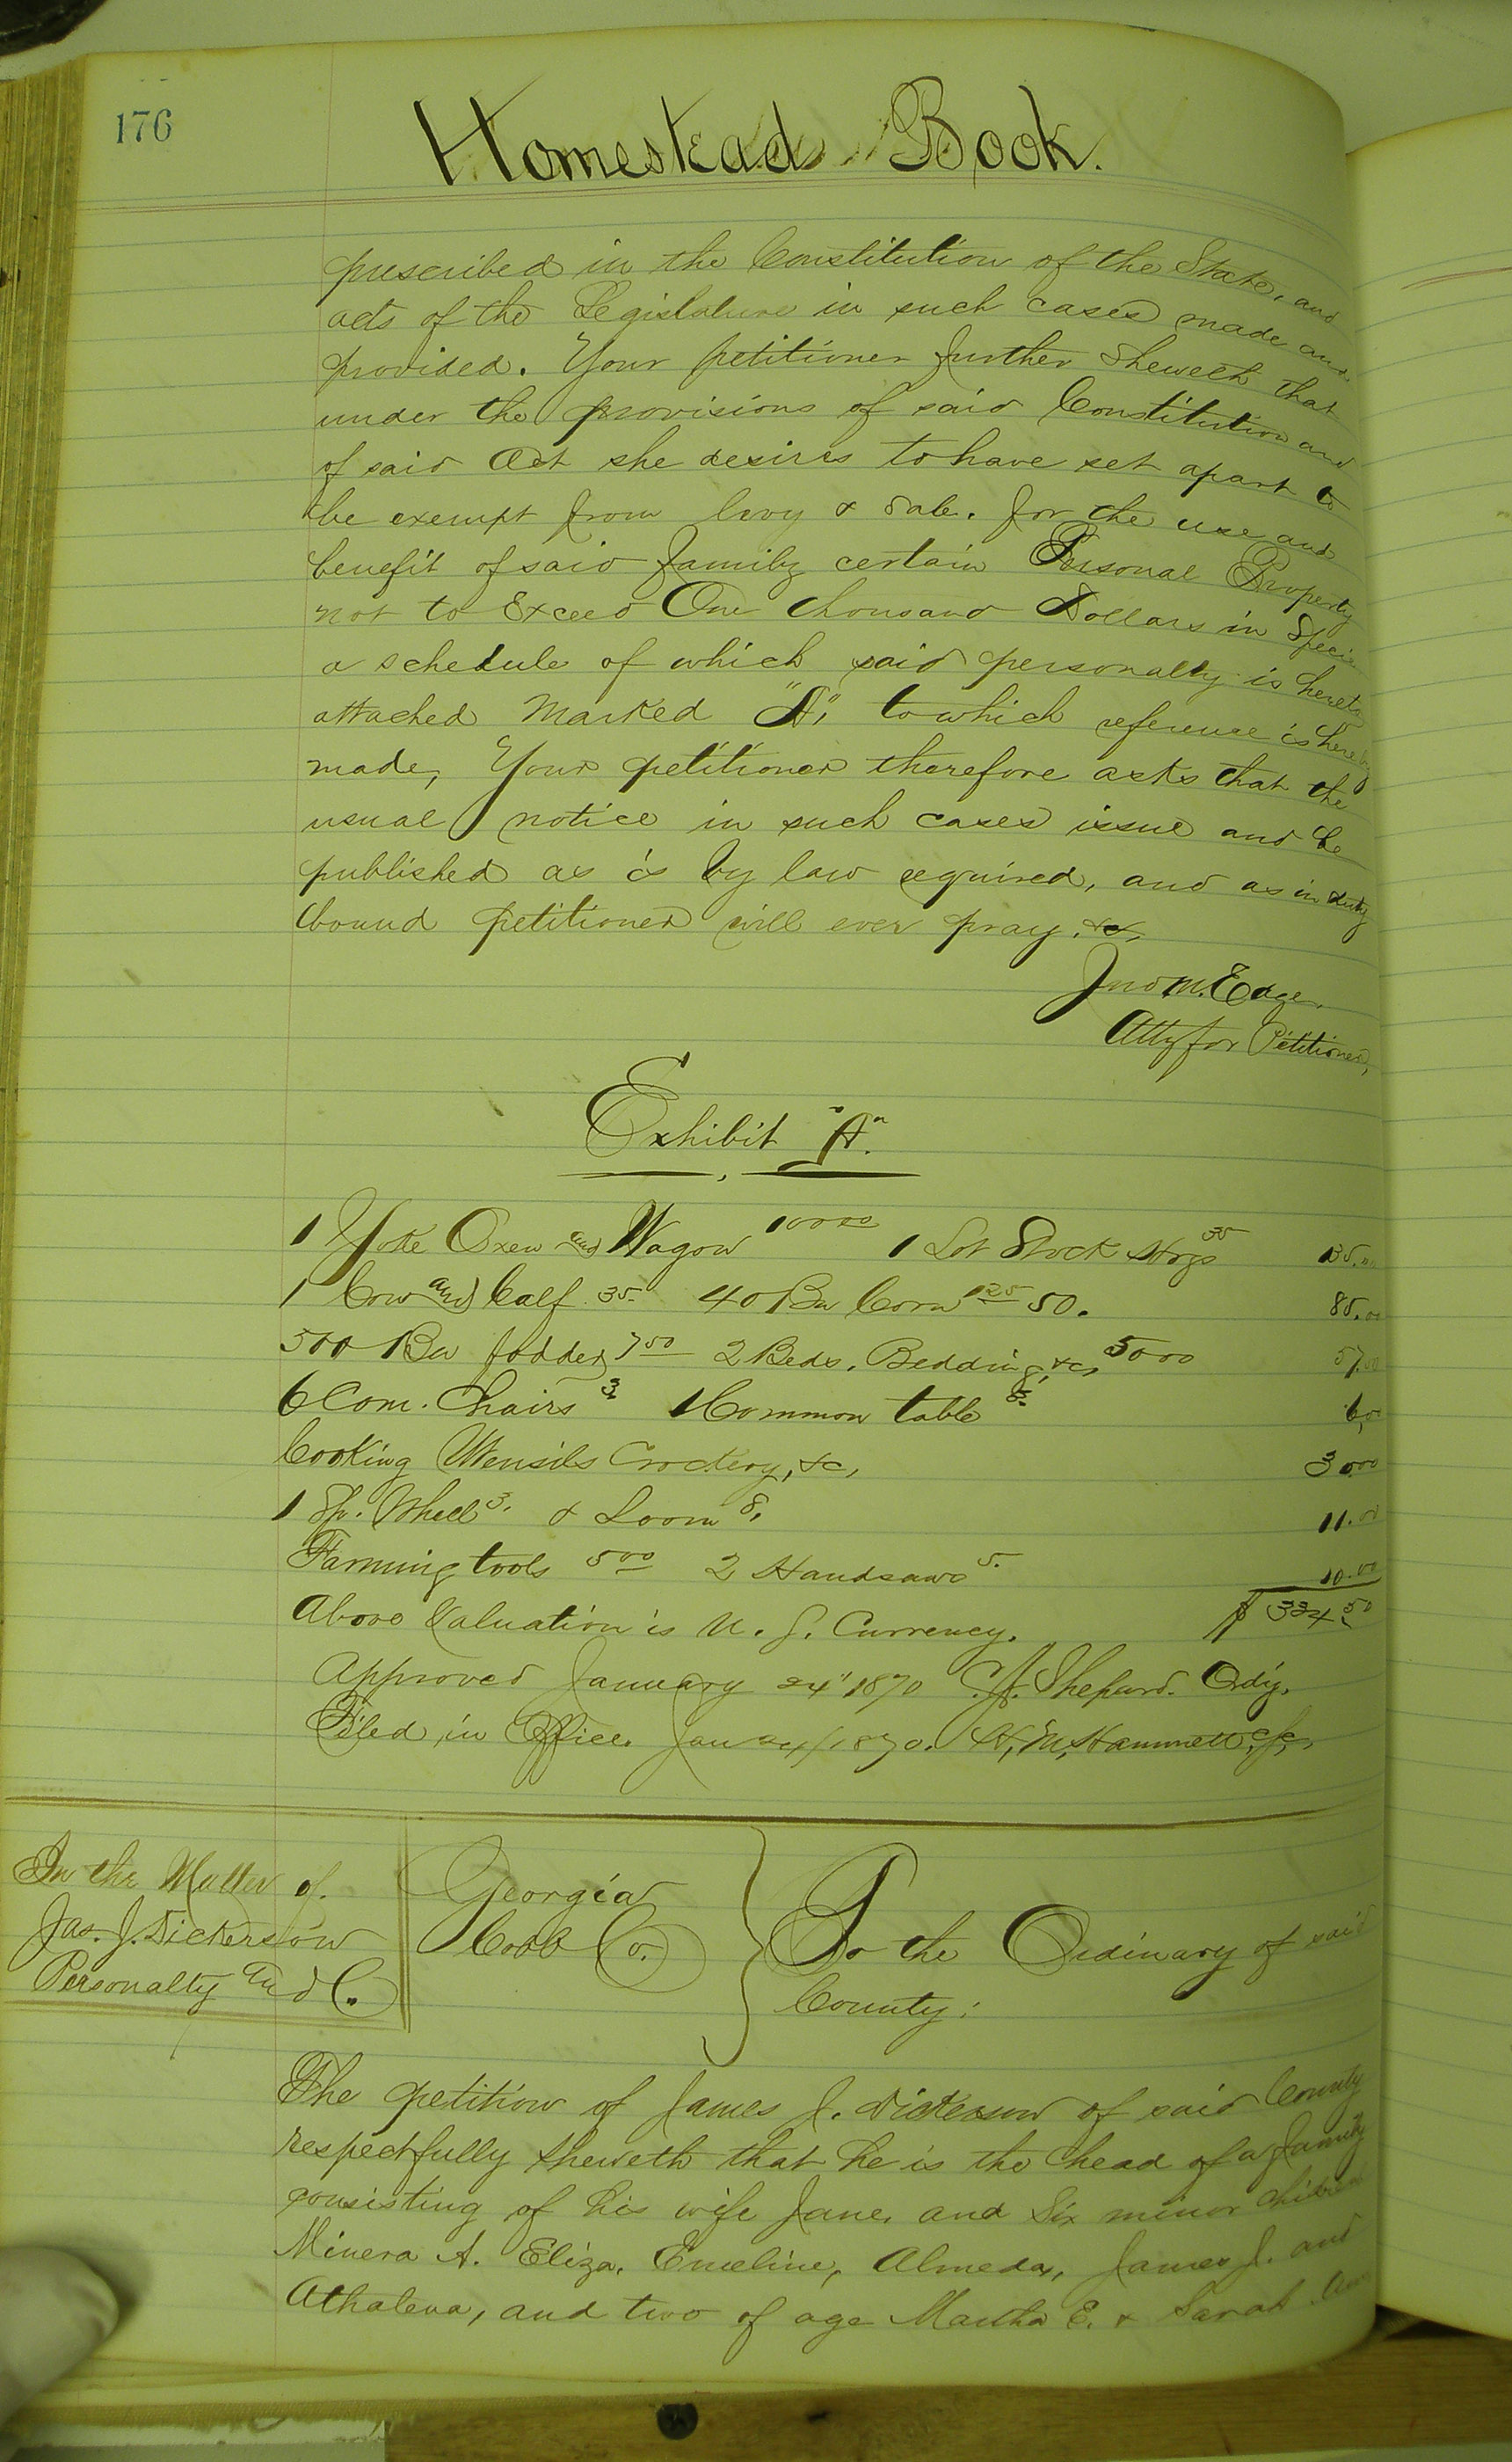 176
Homestead Book.
prescribed in the Constitution of the State, and
acts of the Legislature in such cases made and
provided. Your petitioner further sheweth that
under the provisions of said Constitution and
of said Act she desires to have set apart to
be exempt from levy & sale, for the use and
benefit of said family certain Personal Property
not to Exceed One thousand Dollars in Specie
a schedule of which said personalty is hereto
attached Marked "A", to which reference is hereby
made, Your petitioner therefore asks that the
usual notice in such cases issue and be
published as is by law required, and as in duty
bound petitioner will ever pray, &c,
Jno M. Edge,
Atty for Petitioner,
Exhibit "A".
1 Yoke Oxen and Wagon 100.00 1 Lot Stock Hogs 35 135.00
1 Cow and Calf 35. 40 Bu Corn 1.25 50. 85.00
500 Bu fodder 7.50 2 Beds, Bedding, &c, 50.00 57.50
6 Com. Chairs 3. 1 Common table 3. 6.00
Cooking Utensils Crockery, &c, 30.00
1 Sp. Wheel 3. & Loom 8. 11.00
Farming tools 5.00 2 Handsaws 5. 10.00
Above Valuation is U. S. Currency. $ 334.50
Approved January 24" 1870 Shepard. Ordy.
Filed in Office. Jan 24/1870. H, M, Hammett, c,s,c,
In the Matter of
Jas. J. Dickerson
Personalty and C.
Georgia
Cobb Co.
To the Ordinary of said
County:
The petition of James J. Dickerson of said County
respectfully sheweth that he is the head of a family
consisting of his wife Jane, and Six minor children
Minera A. Eliza, Emeline, Almeda, James J. and
Athalena, and two of age Martha E. & Sarah Ann